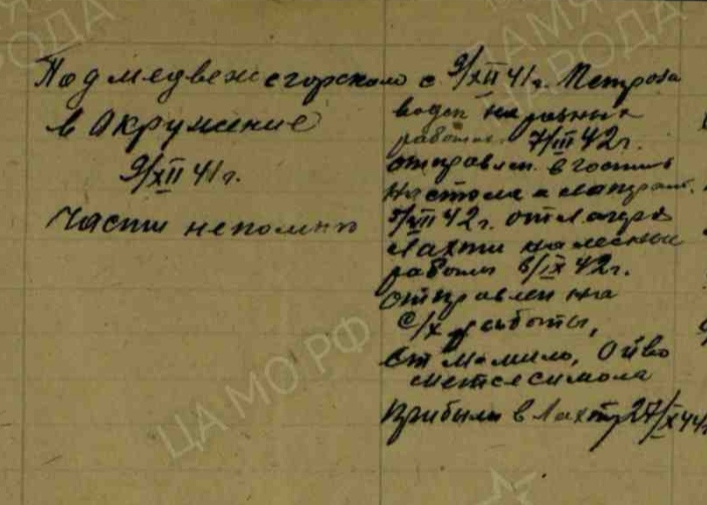 Под медвежегорского
в Окружение
9/XII 41г.
Части непомню
с 9/XII 41г. Петроза
водск на разных
работах. 7/III 42г.
отправлен в госпит
5/VII 42г. от лагеря
Лахти на лесные
работы 6/IX 42г.
отправлен на
с/х работы,
Ойво
Прибыли в Лахту 27/X 44г
ЦАМО РФ
ПАМЯТЬ
НАРОДА
ПАМЯТЬ
НАРОДА